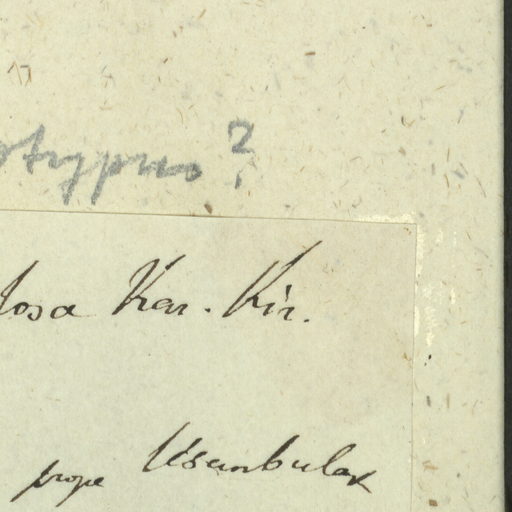 otypus?
losa Kar. Kir.
prope Usunbulak